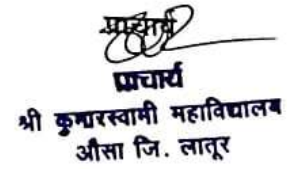 प्राचार्य
प्राचार्य
श्री कुमारस्वामी महाविद्यालय
औसा जि. लातूर